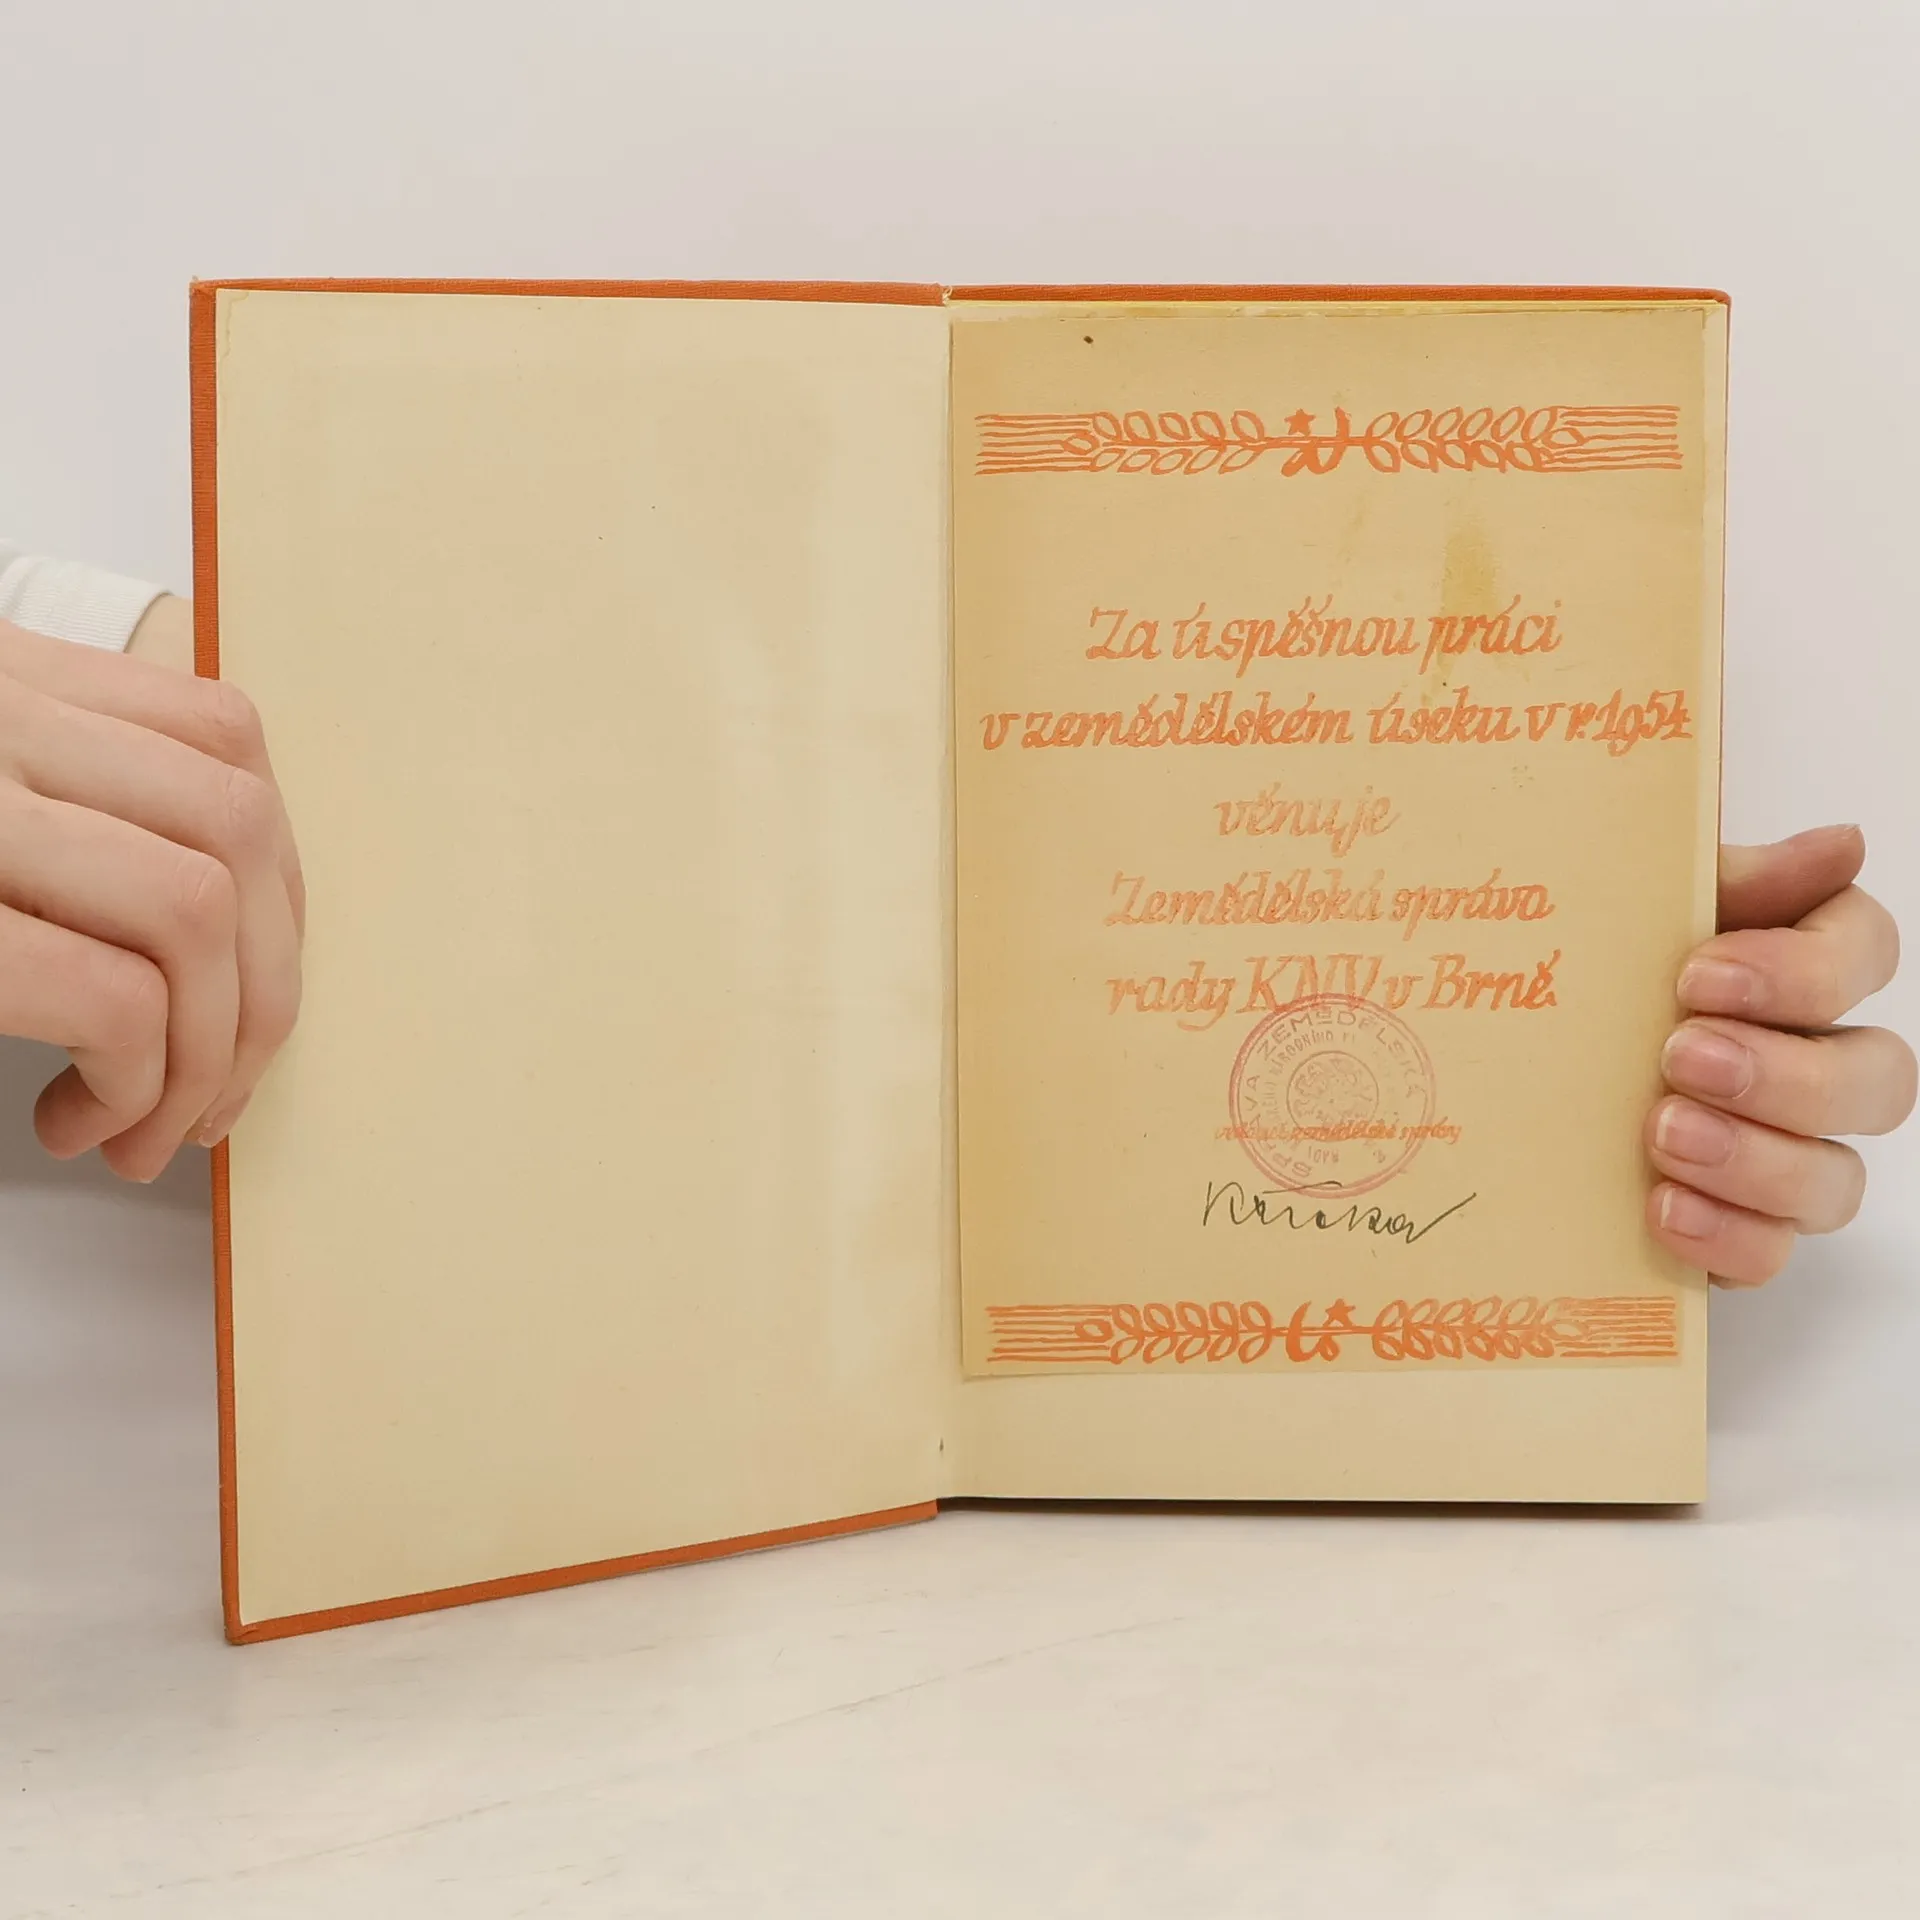 Za úspěšnou práci
v zemědělském úseku v r. 1954
věnuje
Zemědělská správa
rady KNV v Brně.
SPRÁVA ZEMĚDĚLSKÁ
NÁRODNÍHO
RADY
zemědělské správy